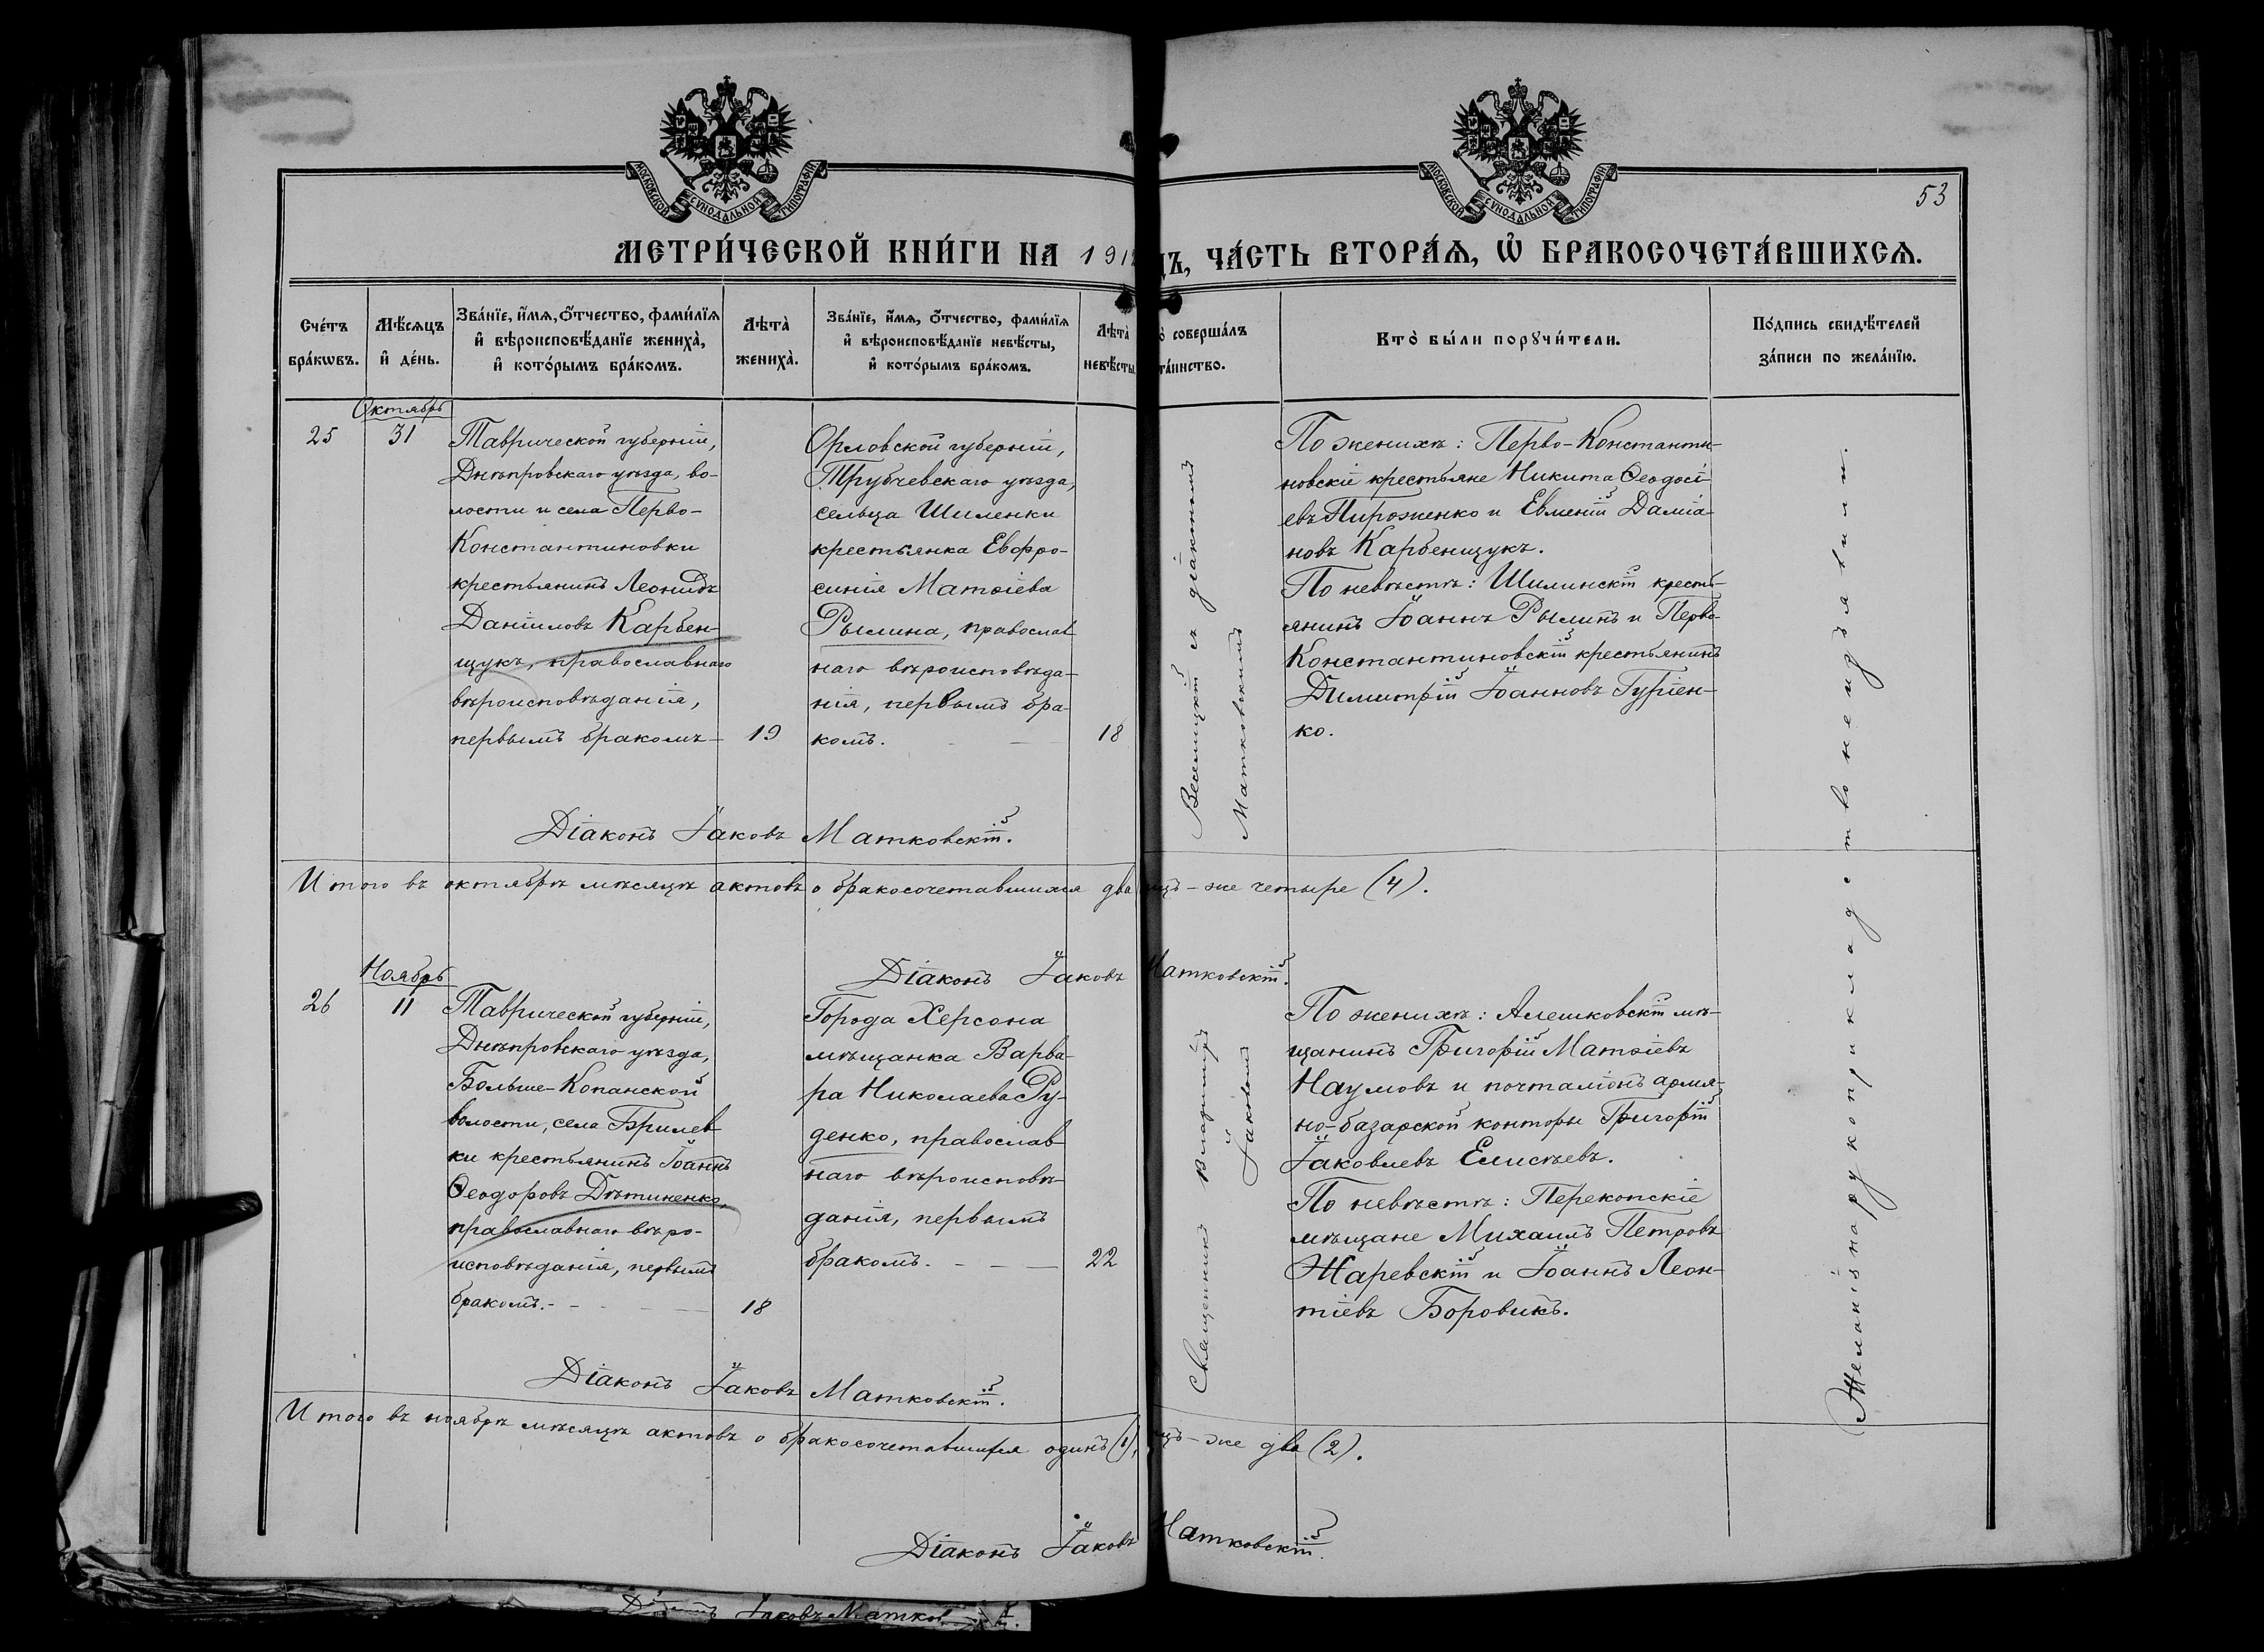 МОСКОВСКОЙ СУНОДАЛЬНОЙ ТИПОГРАФІИ
МОСКОВСКОЙ СУНОДАЛЬНОЙ ТИПОГРАФІИ
53
МЕТРИ́ЧЕСКОЙ КНИ́ГИ НА 191
ЧА́СТЬ ВТОРА́Ѧ, Ѽ БРАКОСОЧЕТА́ВШИХСѦ.
Сче́тъ бра́кѡвъ.
Мѣ́сѧцъ и҆ де́нь.
Зва́нїе, и҆́мѧ, ѻ҆́тчество, фами́лїѧ
и҆ вѣроисповѣ́данїе жениха̀,
и҆ кото́рымъ бра́комъ.
Лѣта̀ жениха̀.
Зва́нїе, и҆́мѧ, ѻ҆́тчество, фами́лїѧ
и҆ вѣроисповѣ́данїе невѣ́сты,
и҆ кото́рымъ бра́комъ.
Лѣта̀ невѣ́сты
совершáлъ
та́инство.
Кто̀ бы́ли порꙋчи́тели.
По́дпись свидѣ́телей
за́писи по жела́нїю.
Октябрь
25
31
Таврической губерніи,
Днѣпровскаго уѣзда, во-
лости и села Перво-
Константиновки
крестьянинъ Леонидъ
Даніиловъ Карбен-
щукъ, православнаго
вѣроисповѣданія,
первымъ бракомъ
19
Орловской губерніи,
Трубчевскаго уѣзда,
сельца Шиленки
крестьянка Евфро-
синія Матѳіева
Рылина, православ
наго вѣроисповѣда-
нія, первымъ бра-
комъ.
18
съ діакономъ
Матковскимъ
По женихѣ: Перво-Константи-
новскіе крестьяне Никита Ѳеодосі-
евъ Пироженко и Евменій Даміа-
новъ Карбенщукъ.
По невѣстѣ: Шилинскій кресть-
янинъ Іоаннъ Рылинъ и Перво-
Константиновскій крестьянинъ
Димитрій Іоанновъ Гуріен-
ко.
Діаконъ Іаковъ Матковскій.
Итого въ октябрѣ мѣсяцѣ актовъ о бракосочетавшихся два
же четыре (4).
Діаконъ Іаковъ Матковскій.
Ноябрь
26
11
Таврической губерніи,
Днѣпровскаго уѣзда,
Больше-Копанской
волости, села Брилев
ки крестьянинъ Іоаннъ
Ѳеодоровъ Дѣтиненко,
православнаго вѣро-
исповѣданія, первымъ
бракомъ.
18
Города Херсона
мѣщанка Варва-
ра Николаева Ру-
денко, православ
наго вѣроисповѣ-
данія, первымъ
бракомъ.
22
Священникъ Владиміръ
Іаковомъ
По женихѣ: Алешковскій мѣ-
щанинъ Григорій Матѳіевъ
Наумовъ и почталіонъ армя-
но-базарской конторы Григорій
Іаковлевъ Елисѣевъ.
По невѣстѣ: Перекопскіе
мѣщане Михаилъ Петровъ
Жаревскій и Іоаннъ Леон-
тіевъ Боровикъ.
Желанія на рукоприкладство не изъявили.
Діаконъ Іаковъ Матковскій.
Итого въ ноябрѣ мѣсяцѣ актовъ о бракосочетавшихся одинъ (1),
же два (2).
Діаконъ Іаковъ Матковскій.
Іаковъ Матков